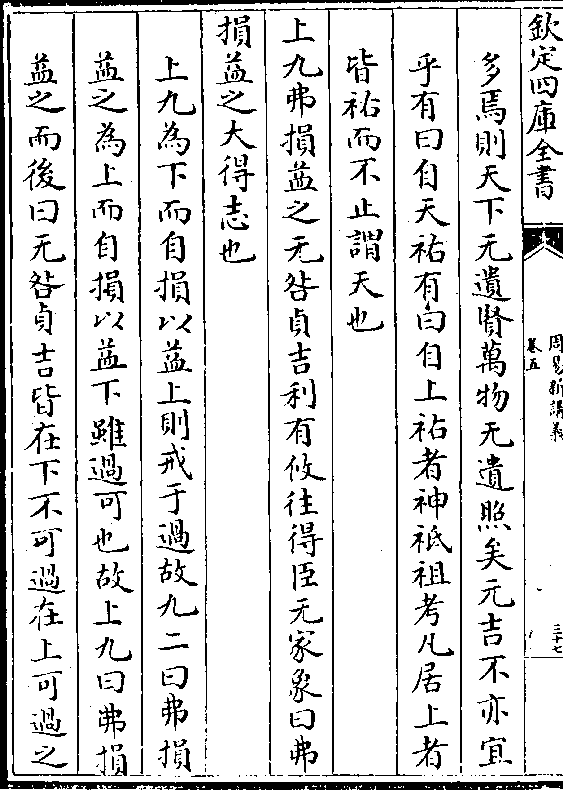 欽定四庫全書
周易新講義
卷五
三十七
多焉則天下无遺賢萬物无遺照矣元吉不亦宜
乎有曰自天祐有曰自上祐者神祗祖考凡居上者
皆祐而不止謂天也
上九弗損益之无咎貞吉利有攸往得臣无家象曰弗
損益之大得志也
上九為下而自損以益上則戒于過故九二曰弗損
益之為上而自損以益下雖過可也故上九曰弗損
益之而後曰无咎貞吉皆在下不可過在上可過之